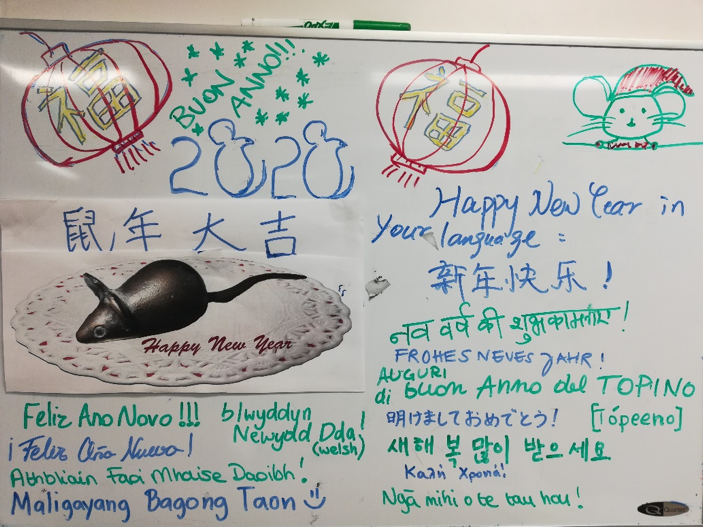 福
BUON
ANNO!!!
福
2020
鼠年大吉
Happy New Year
Happy New Year in
your language :
新年快乐!
नव वर्ष की शुभकामनाएं!
FROHES NEUES JAHR!
AUGURI
di buon Anno del TOPINO
[Tópeeno]
明けましておめでとう!
새해 복 많이 받으세요
Καλή Χρονιά!
Ngā mihi o te tau hou!
Feliz Ano Novo!!!
blwyddyn
Newydd Dda!
(welsh)
¡Feliz Año Nuevo!
Athbhliain Faoi Mhaise Daoibh!
Maligayang Bagong Taon